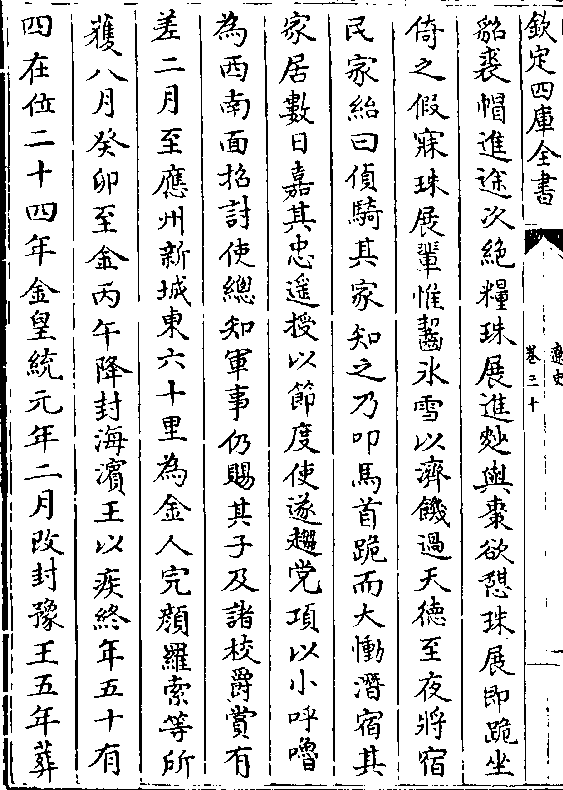 欽定四庫全書
遼史
卷三十
貂裘帽進途次絶糧珠展進麨與棗欲憇珠展即跪坐
倚之假寐珠展輩惟齧氷雪以濟饑過天德至夜將宿
民家紿曰偵騎其家知之乃叩馬首跪而大慟潛宿其
家居數日嘉其忠遥授以節度使遂趨党項以小呼嚕
為西南面招討使總知軍事仍賜其子及諸校爵賞有
差二月至應州新城東六十里為金人完顔羅索等所
獲八月癸卯至金丙午降封海濱王以疾終年五十有
四在位二十四年金皇統元年二月改封豫王五年葬